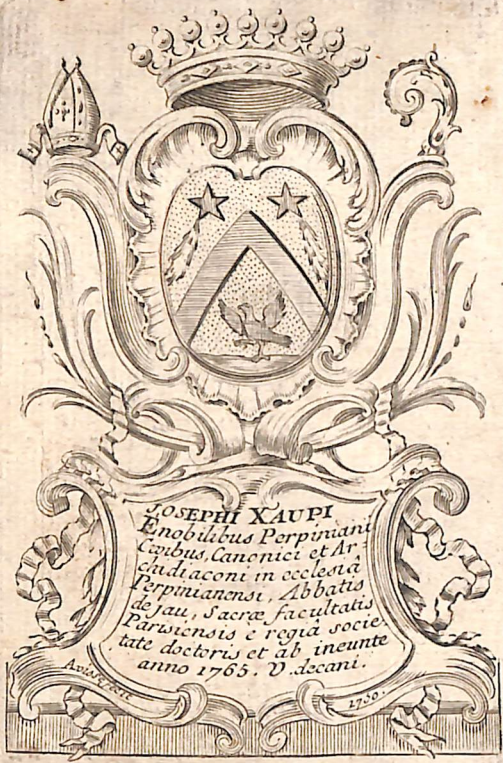 JOSEPHI XAUPI
Enobilibus Perpiniani
Civibus, Canonici et Ar-
chidiaconi in ecclesiâ
Perpinianensi, Abbatis
de Jau, Sacræ facultatis
Parisiensis è regiâ socie-
tate doctoris et ab ineunte
anno 1765. V. decani.
1750.